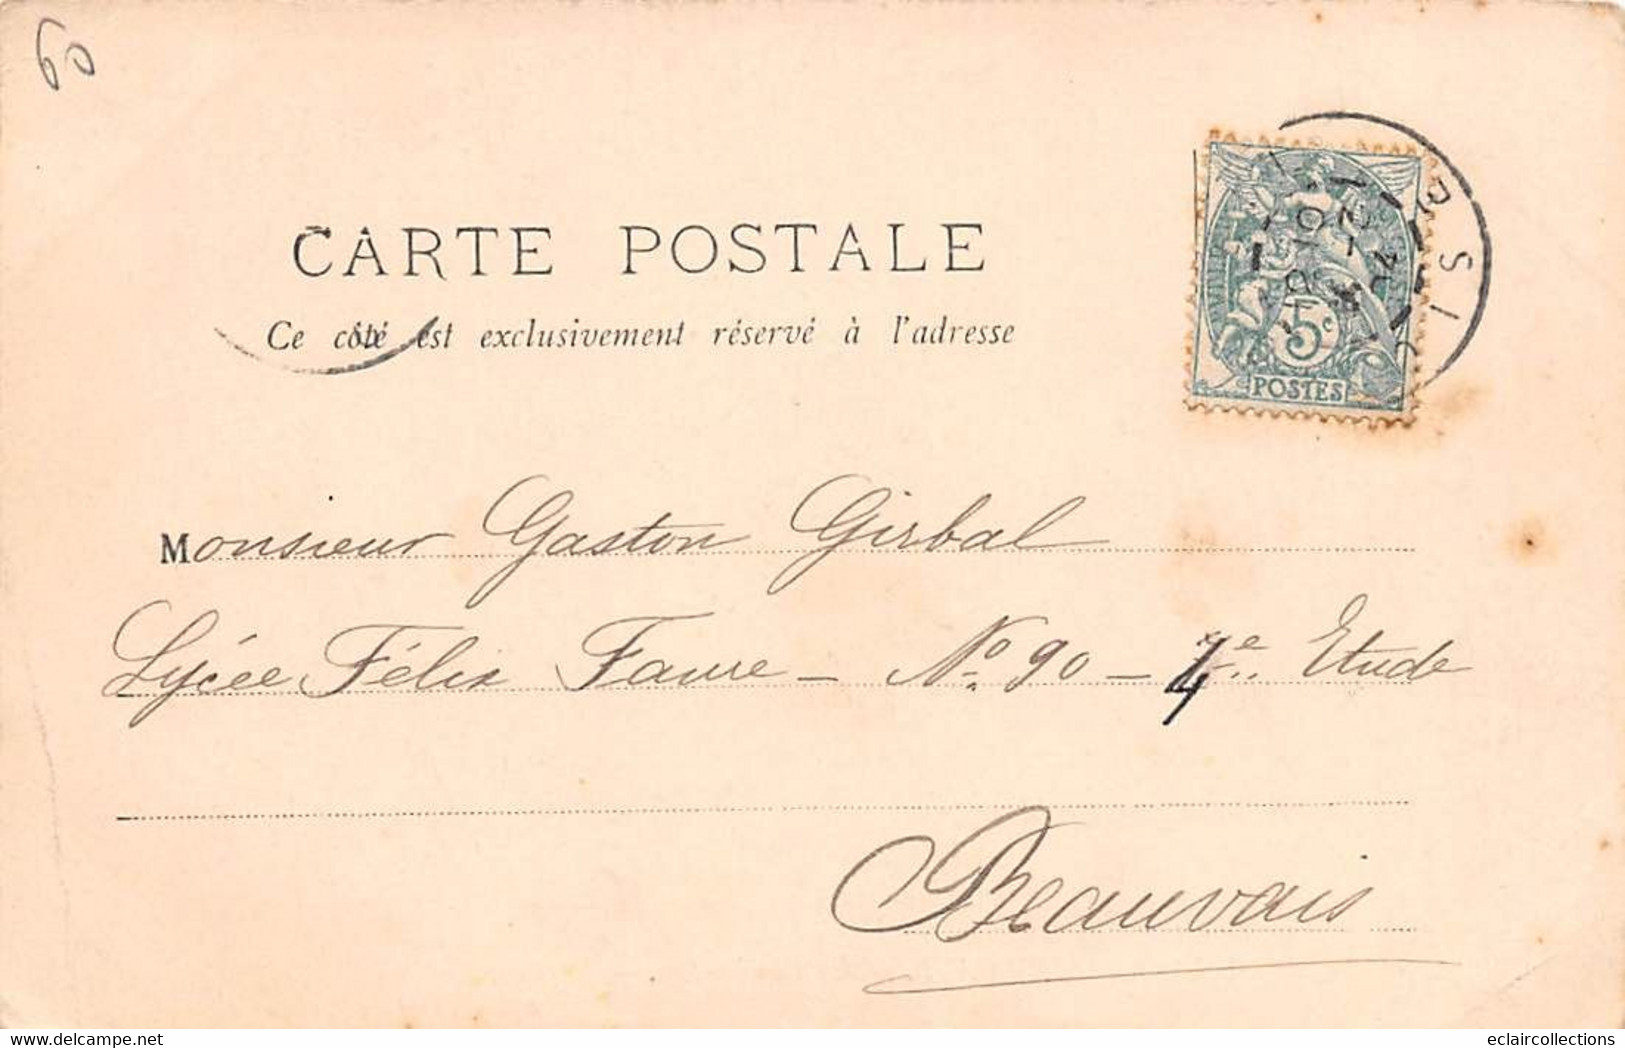 60
CARTE POSTALE
Ce côté est exclusivement réservé à l'adresse
5c
POSTES
Monsieur Gaston Girbal
Lycée Félix Faure – No 90 – 4e Etude
Beauvais
eclaircollections